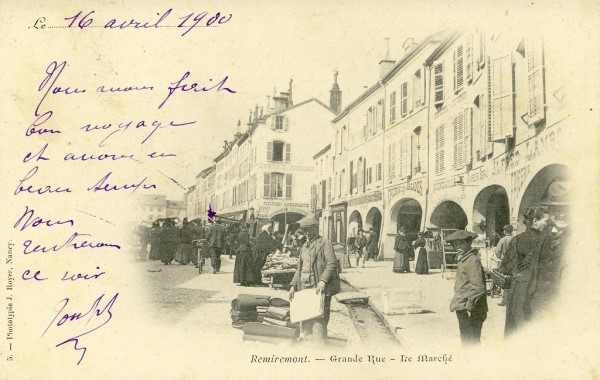 Le 16 avril 1900
Nous avons fait
bon voyage
et avons eu
beau temps
Nous
rentrerons
ce soir
Remiremont. — Grande Rue - Le Marché
5. — Phototypie J. Royer, Nancy.